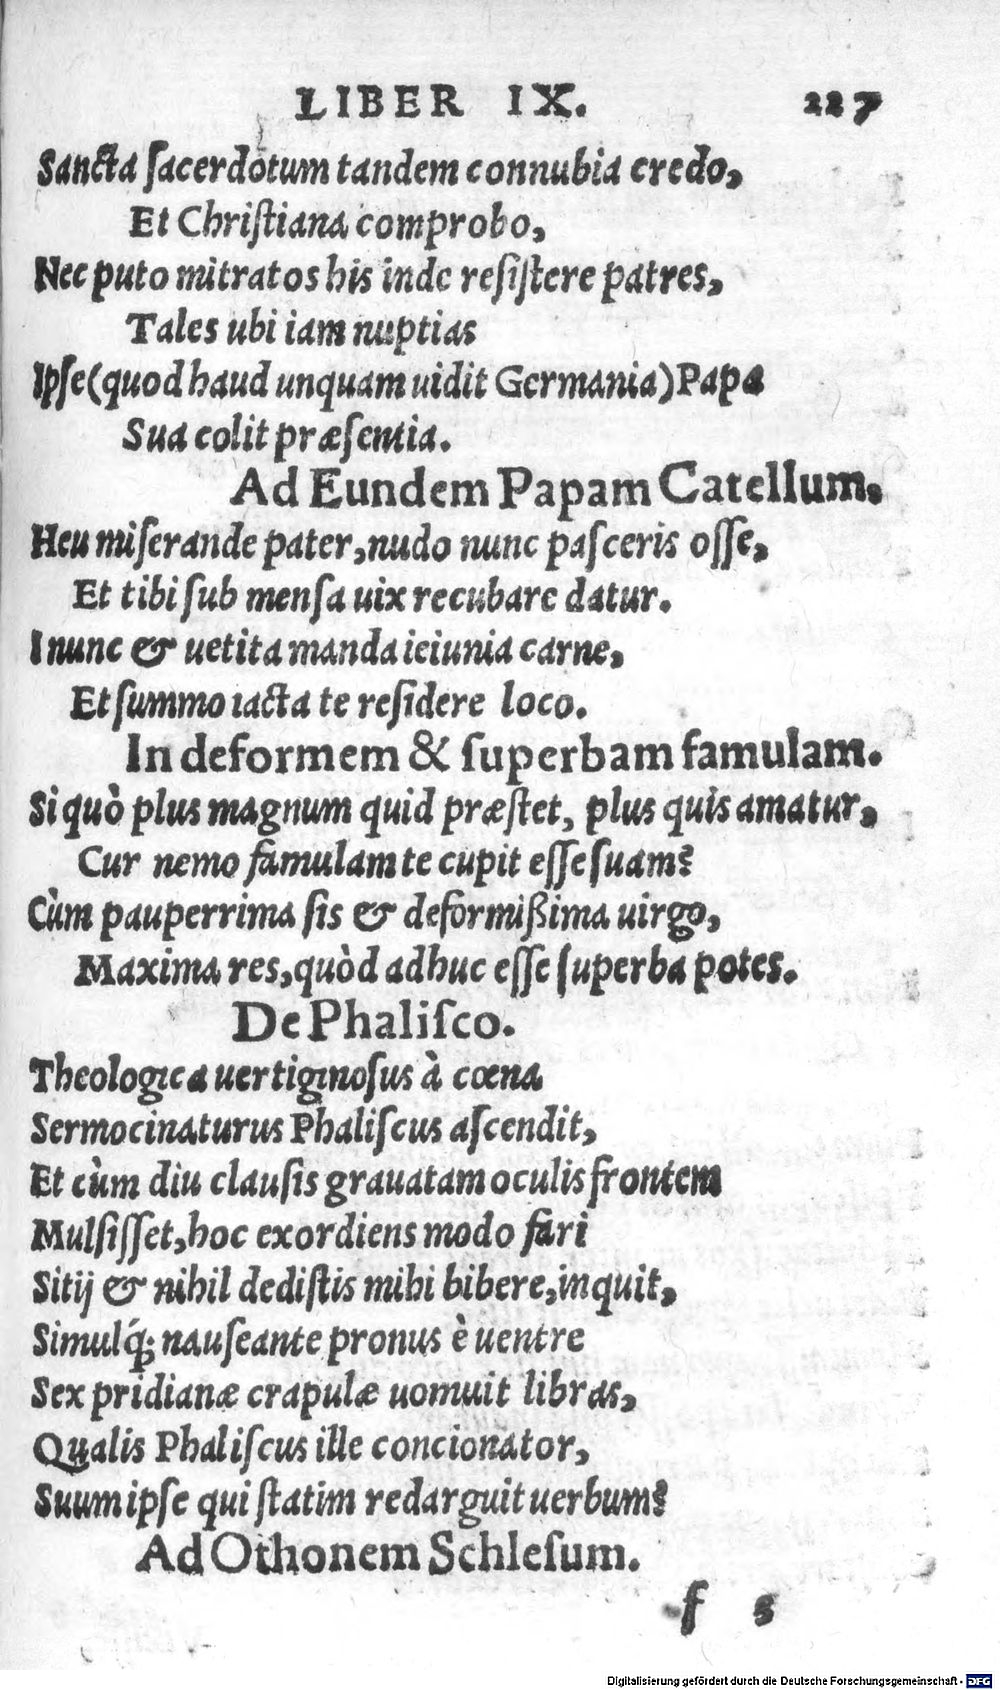 LIBER IX. 227
Sancta ſacerdotum tandem connubia credo,
Et Chriſtiana comprobo,
Nec puto mitratos his inde reſiſtere patres,
Tales ubi iam nuptias
Ipſe (quod haud unquam uidit Germania) Papa
Sua colit præſentia.
Ad Eundem Papam Catellum.
Heu miſerande pater, nudo nunc paſceris oſſe,
Et tibi ſub menſa uix recubare datur.
I nunc & uetita manda ieiunia carne,
Et ſummo iacta te reſidere loco.
In deformem & ſuperbam famulam.
Si quò plus magnum quid præſtet, plus quis amatur,
Cur nemo famulam te cupit eſſe ſuam?
Cùm pauperrima ſis & deformißima uirgo,
Maxima res, quòd adhuc eſſe ſuperba potes.
De Phaliſco.
Theologica uertiginoſus à cœna
Sermocinaturus Phaliſcus aſcendit,
Et cùm diu clauſis grauatam oculis frontem
Mulſiſſet, hoc exordiens modo fari
Sitij & nihil dediſtis mihi bibere, inquit,
Simulq́; nauſeante pronus è uentre
Sex pridianæ crapulæ uomuit libras,
Qualis Phaliſcus ille concionator,
Suum ipſe qui ſtatim redarguit uerbum?
Ad Othonem Schleſum.
f 5
Digitalisierung gefördert durch die Deutsche Forschungsgemeinschaft - DFG